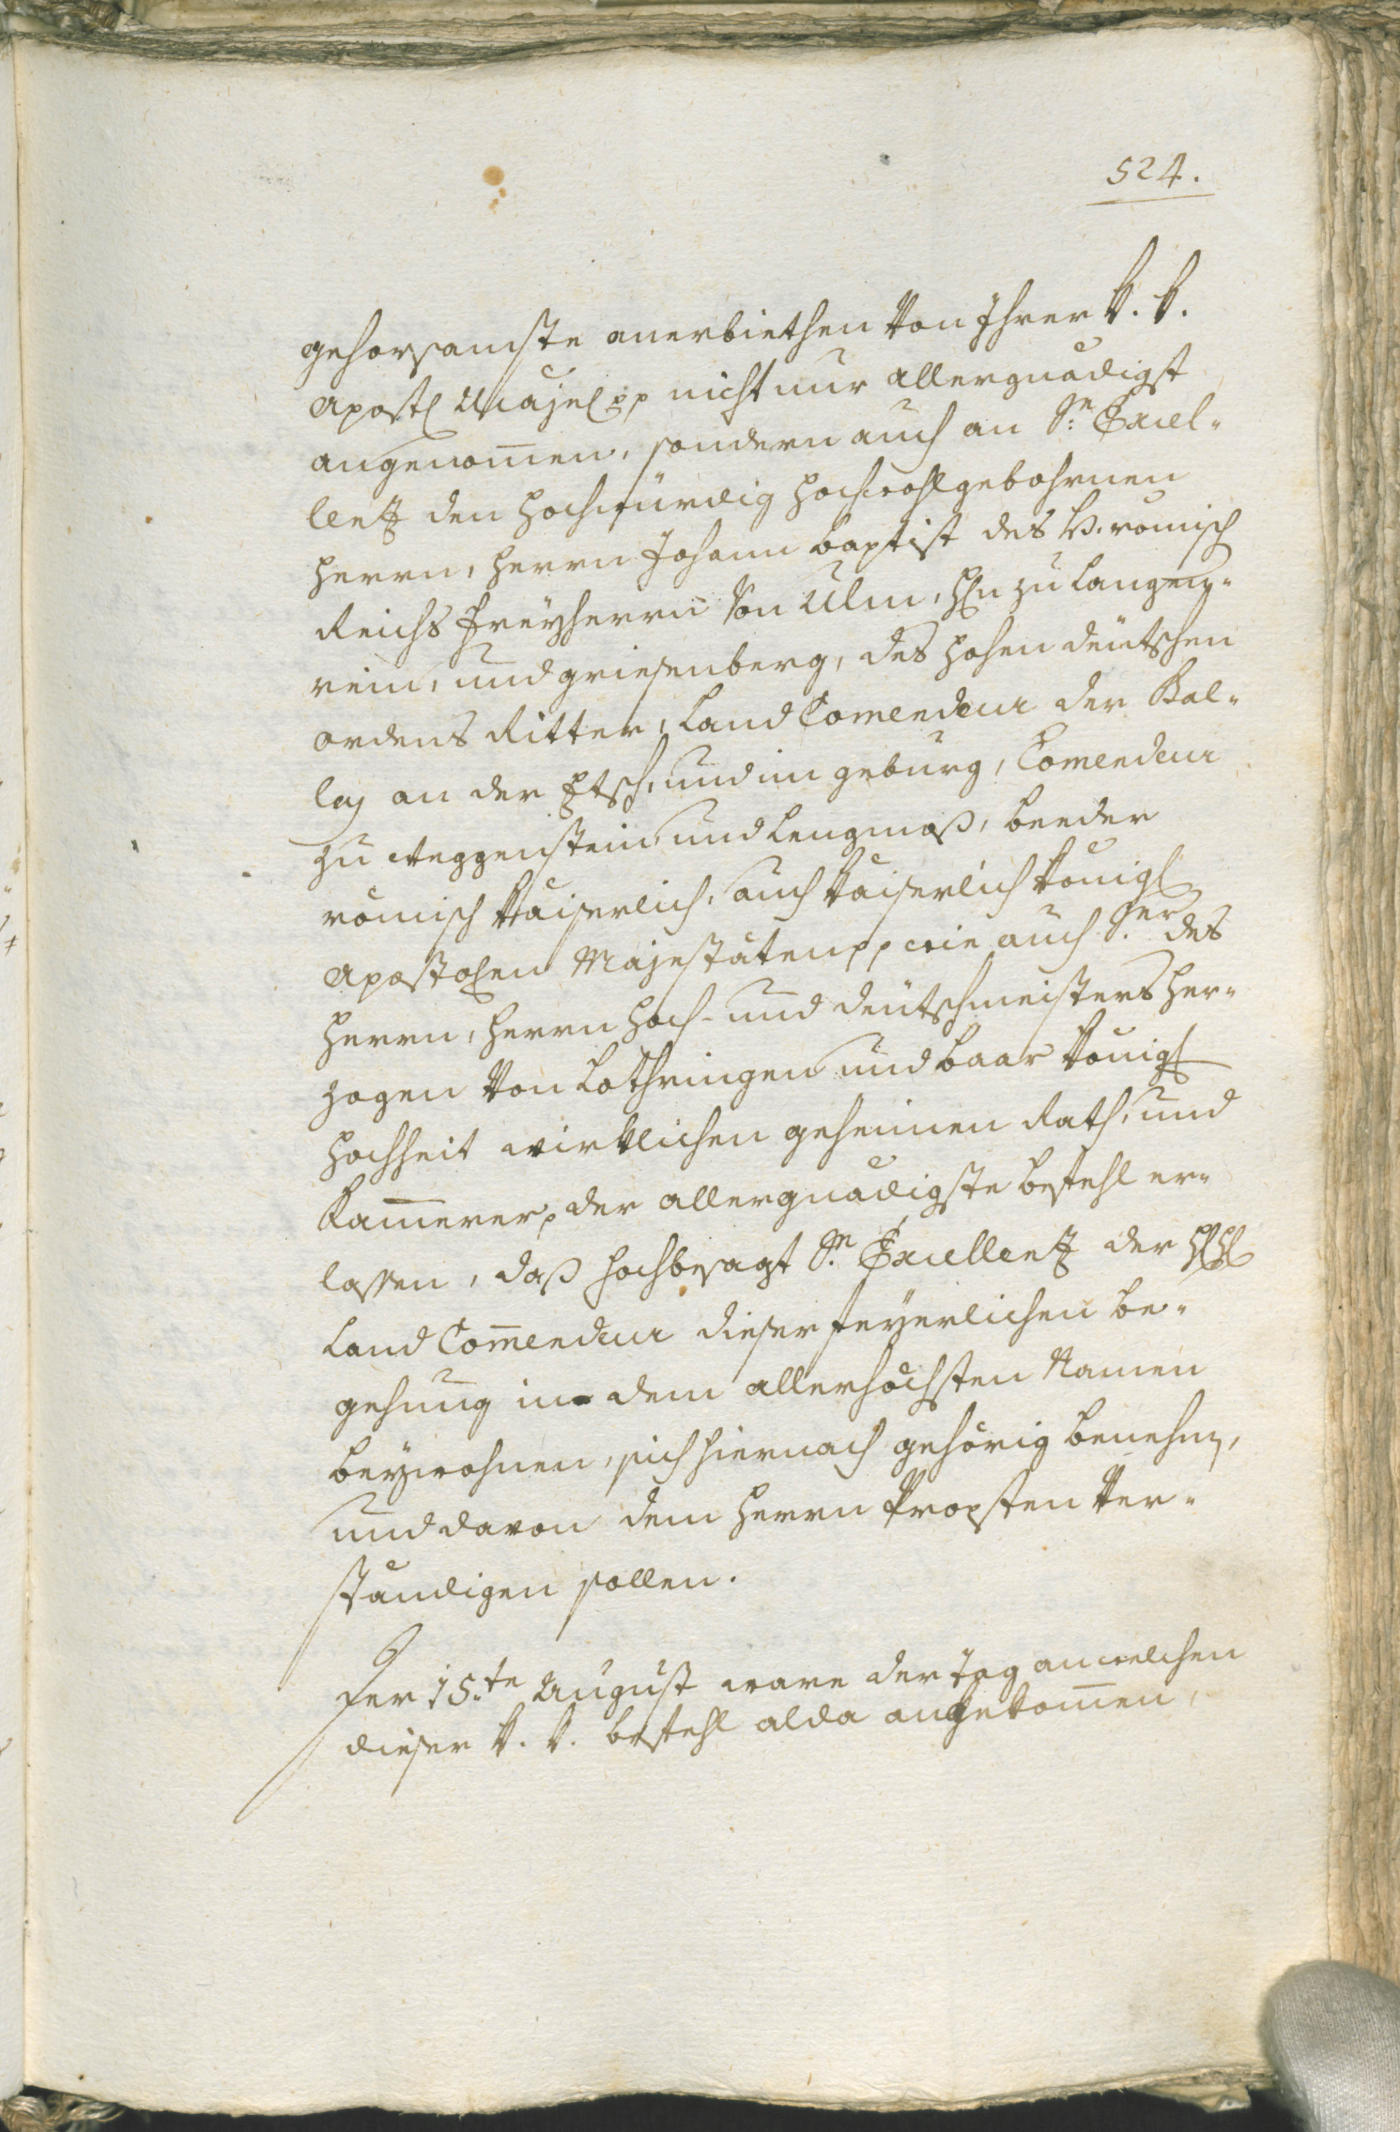 524.
gehorsamste anerbiethen von Ihrer k. k.
Apostl Majel pp nicht nur allergnädigst
angenom̄en, sondern auch an Sr. Excel-
lentz den hochwürdig hochwohlgebohrnen
Herrn, Herrn Johann baptist des H. römisch
Reichs freyherrn von Ulm, Hℓn zu Langen-
rein, und griesenberg, des hohen deütschen
ordens Ritter, Land Com̄endeur der Bal-
ley an der Etsch, und im gebürg, Com̄endeur
zu Weggenstein und Lengmoß, beeder
römisch Kaiserlich, auch Kaiserlich Königl
Apostolen Majestäten pp wie auch Ser des
Herrn, Herrn Hoch- und deütschmeisters Her-
zogen von Lothringen und baar Königl
Hochheit wirklichen geheimen Rath, und
Kam̄erer, der allergnädigste befehl er-
lassen, daß hochbesagt Sr. Excellentz der
Land Com̄endeur dieser feyerlichen be-
gehung in dem allerhöchsten Namen
beywohnen, sich hiernach gehörig benehm̄,
und davon dem Herrn Propsten ver-
ständigen sollen.
Der 15.te August ware der tag an welchen
dieser k. k. befehl alda angekom̄en,